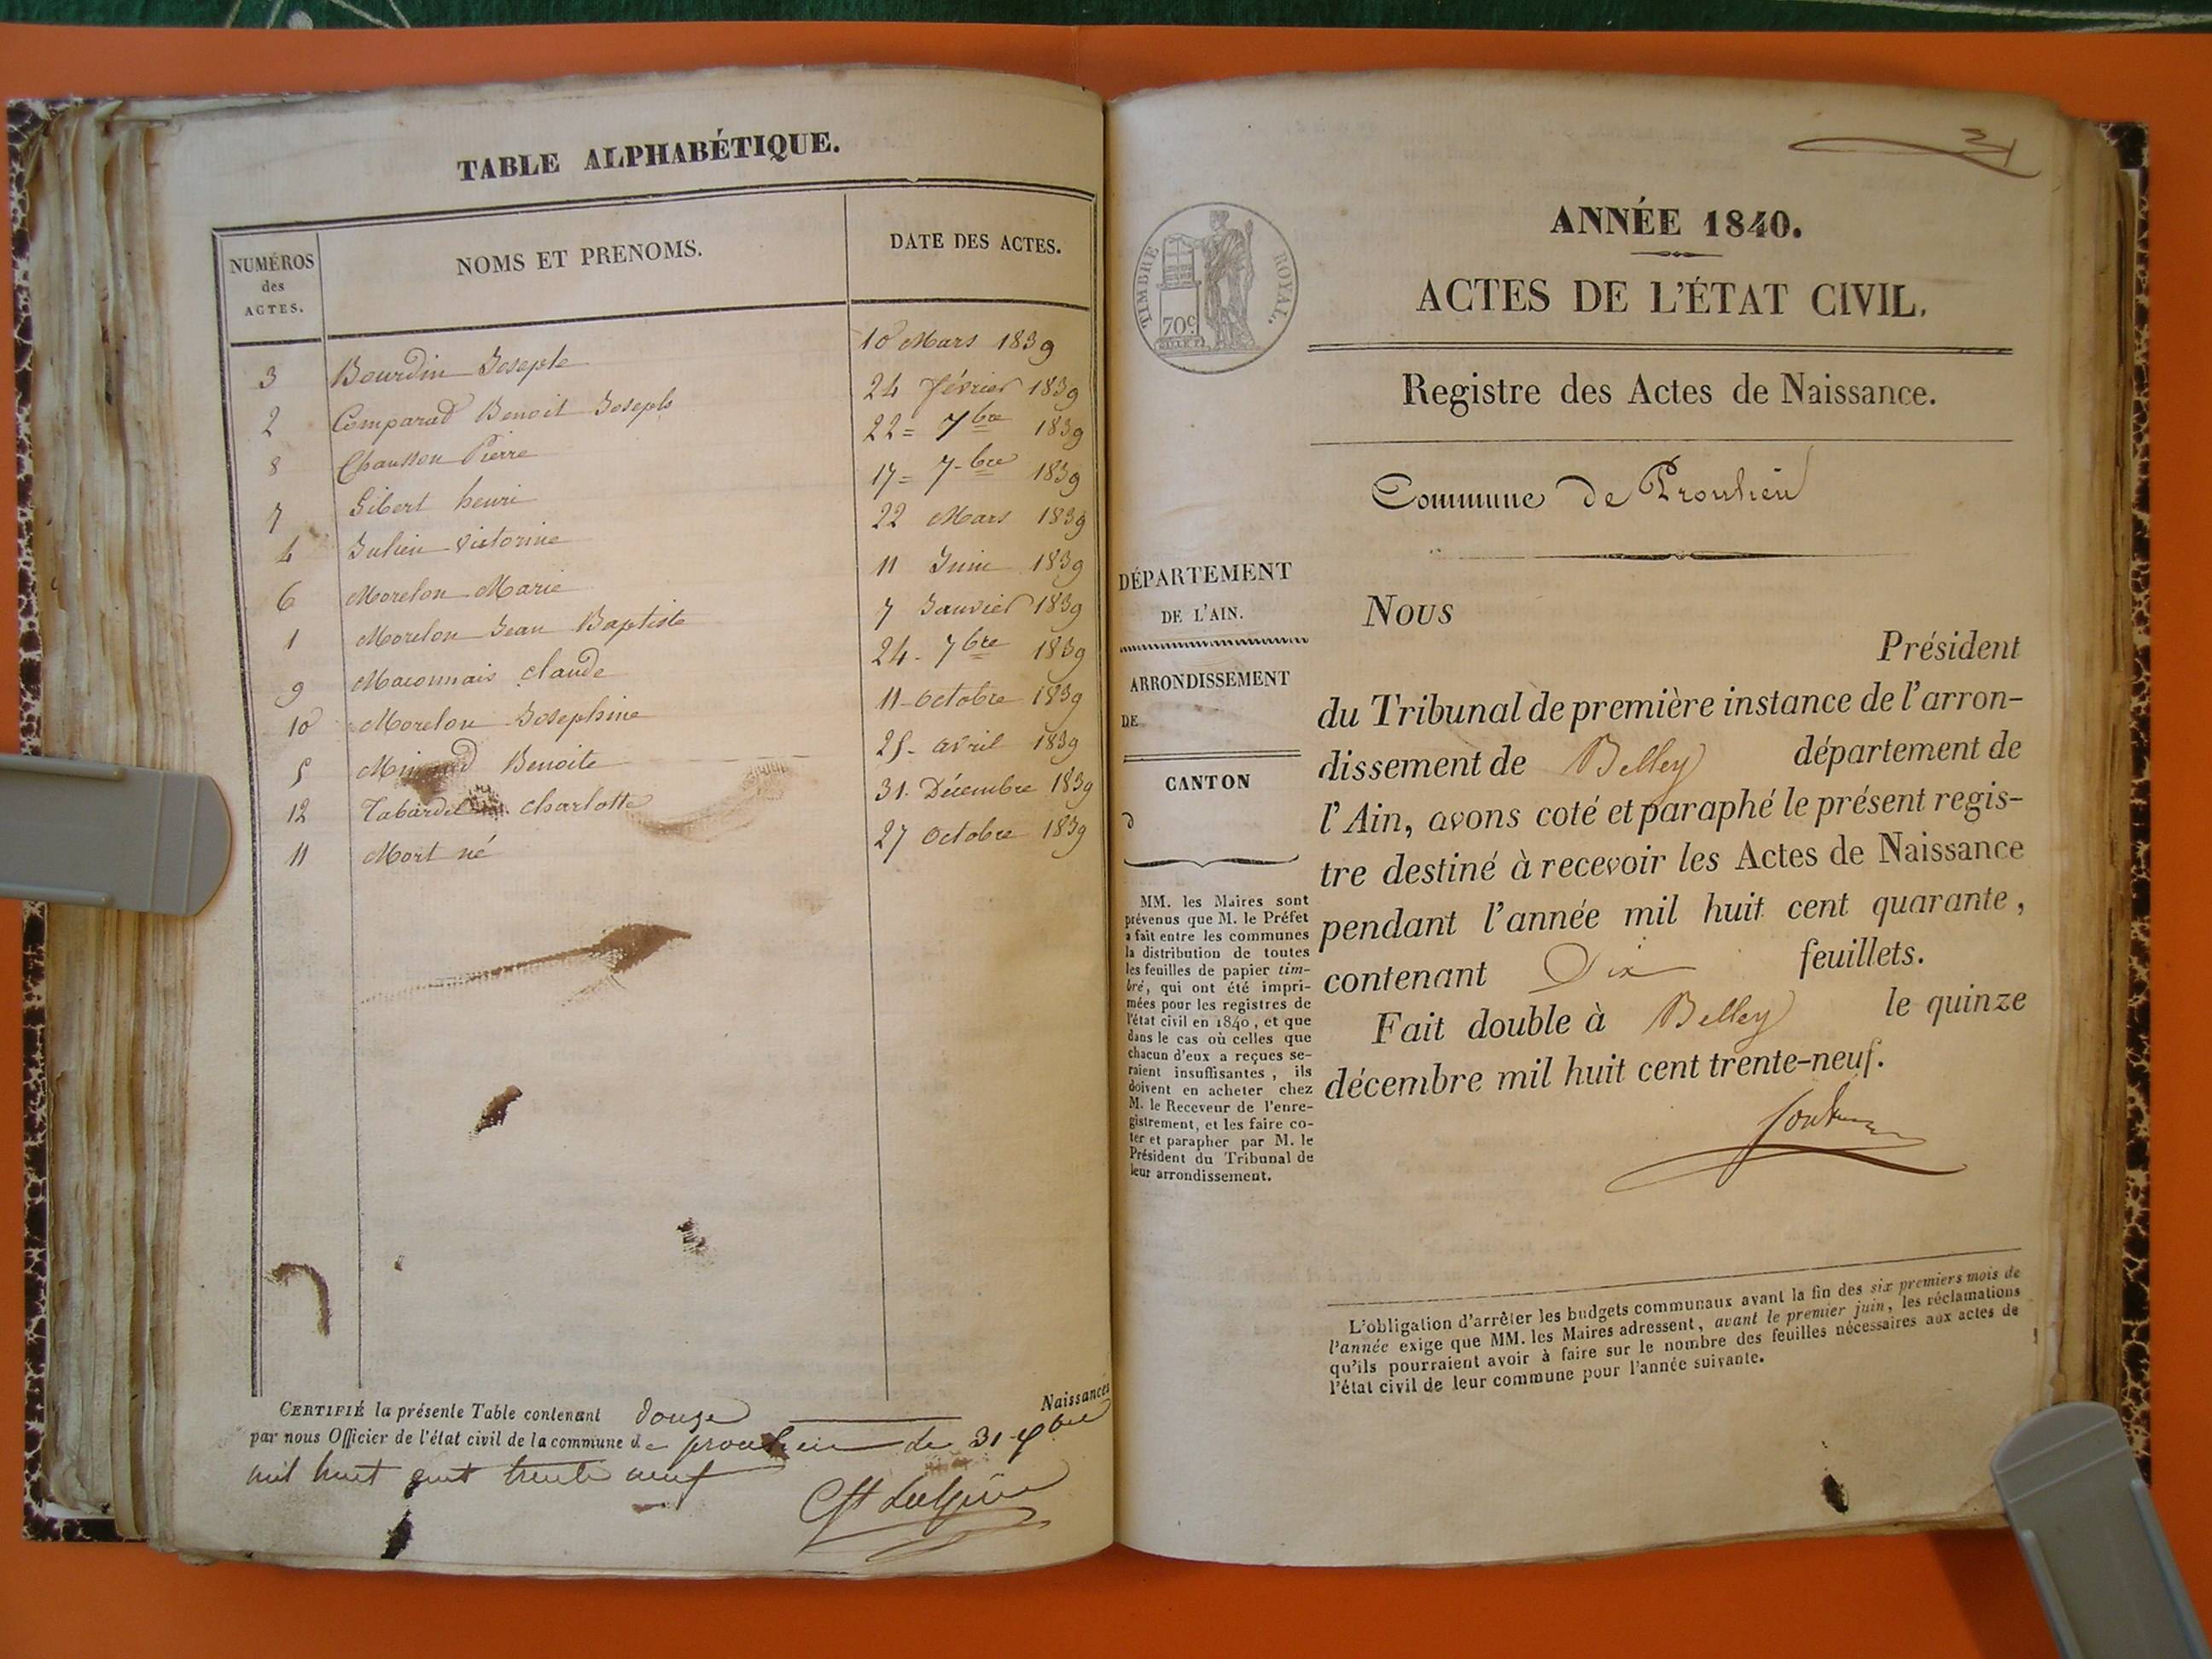 TABLE ALPHABÉTIQUE.
NUMÉROS des ACTES. NOMS ET PRENOMS. DATE DES ACTES.
3 Bourdin Josephe 10 Mars 1839
2 Comparad Benoit Joseph 24 février 1839
8 Chausson Pierre 22= 7bre 1839
7 Gibert henri 17= 7-bre 1839
4 Julien victorine 22 Mars 1839
6 Morelon Marie 11 Juin 1839
1 Morelon Jean Baptiste 7 Janvier 1839
9 Maconnais claude 24- 7bre 1839
10 Morelon Josephine 11- octobre 1839
5 Benoite 25- avril 1839
12 charlotte 31- Décembre 1839
11 Mort né 27 octobre 1839
CERTIFIÉ la présente Table contenant douze Naissances
par nous Officier de l'état civil de la commune de proulieu
mil huit cent trente neuf
ANNÉE 1840.
ACTES DE L'ÉTAT CIVIL.
TIMBRE ROYAL.
70c
Registre des Actes de Naissance.
Commune de Proulieu
DÉPARTEMENT
DE L'AIN.
ARRONDISSEMENT
DE
CANTON
d
MM. les Maires sont
prévenus que M. le Préfet
a fait entre les communes
la distribution de toutes
les feuilles de papier tim-
bré, qui ont été impri-
mées pour les registres de
l'état civil en 1840, et que
dans le cas où celles que
chacun d'eux a reçues se-
raient insuffisantes, ils
doivent en acheter chez
M. le Receveur de l'enre-
gistrement, et les faire co-
ter et parapher par M. le
Président du Tribunal de
leur arrondissement.
Nous
Président
du Tribunal de première instance de l'arron-
dissement de Belley département de
l'Ain, avons coté et paraphé le présent regis-
tre destiné à recevoir les Actes de Naissance
pendant l'année mil huit cent quarante,
contenant Dix feuillets.
Fait double à Belley le quinze
décembre mil huit cent trente-neuf.
L'obligation d'arrêter les budgets communaux avant la fin des six premiers mois de
l'année exige que MM. les Maires adressent, avant le premier juin, les réclamations
qu'ils pourraient avoir à faire sur le nombre des feuilles nécessaires aux actes de
l'état civil de leur commune pour l'année suivante.